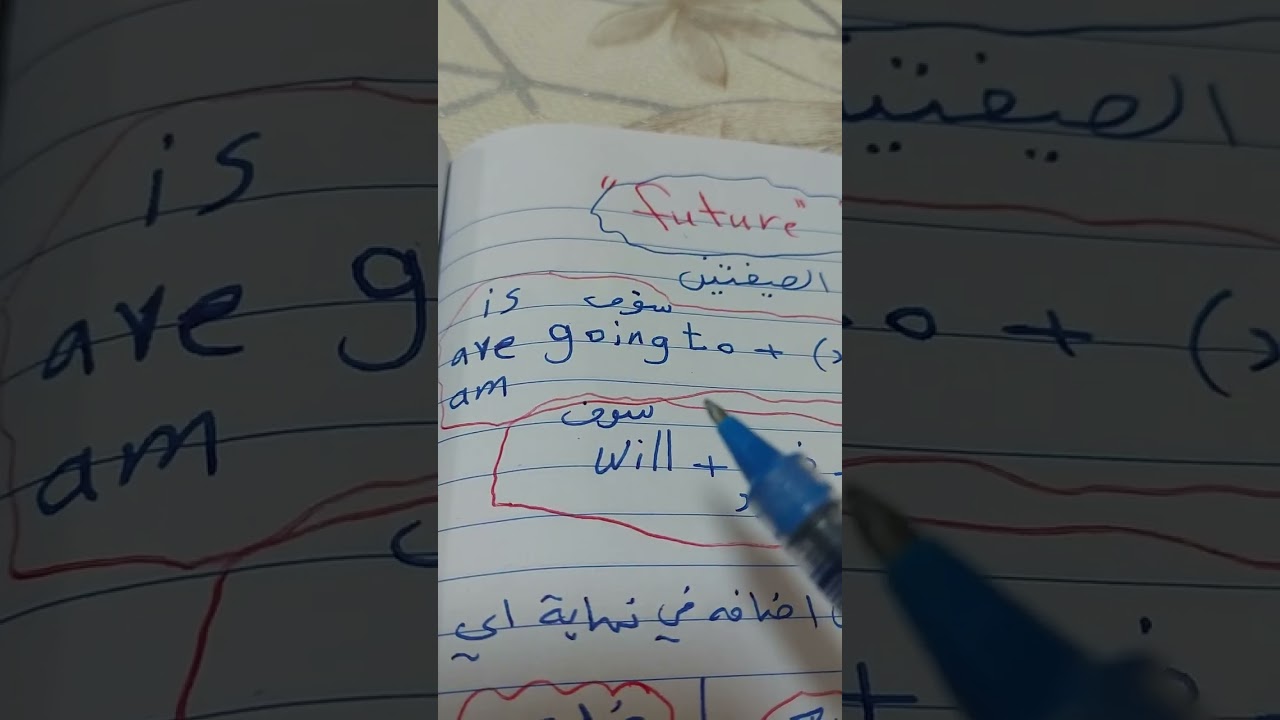 "future"
الصيغتين
is سوف
are going to + (
am
سوف
will +
اضافه في نهاية اي